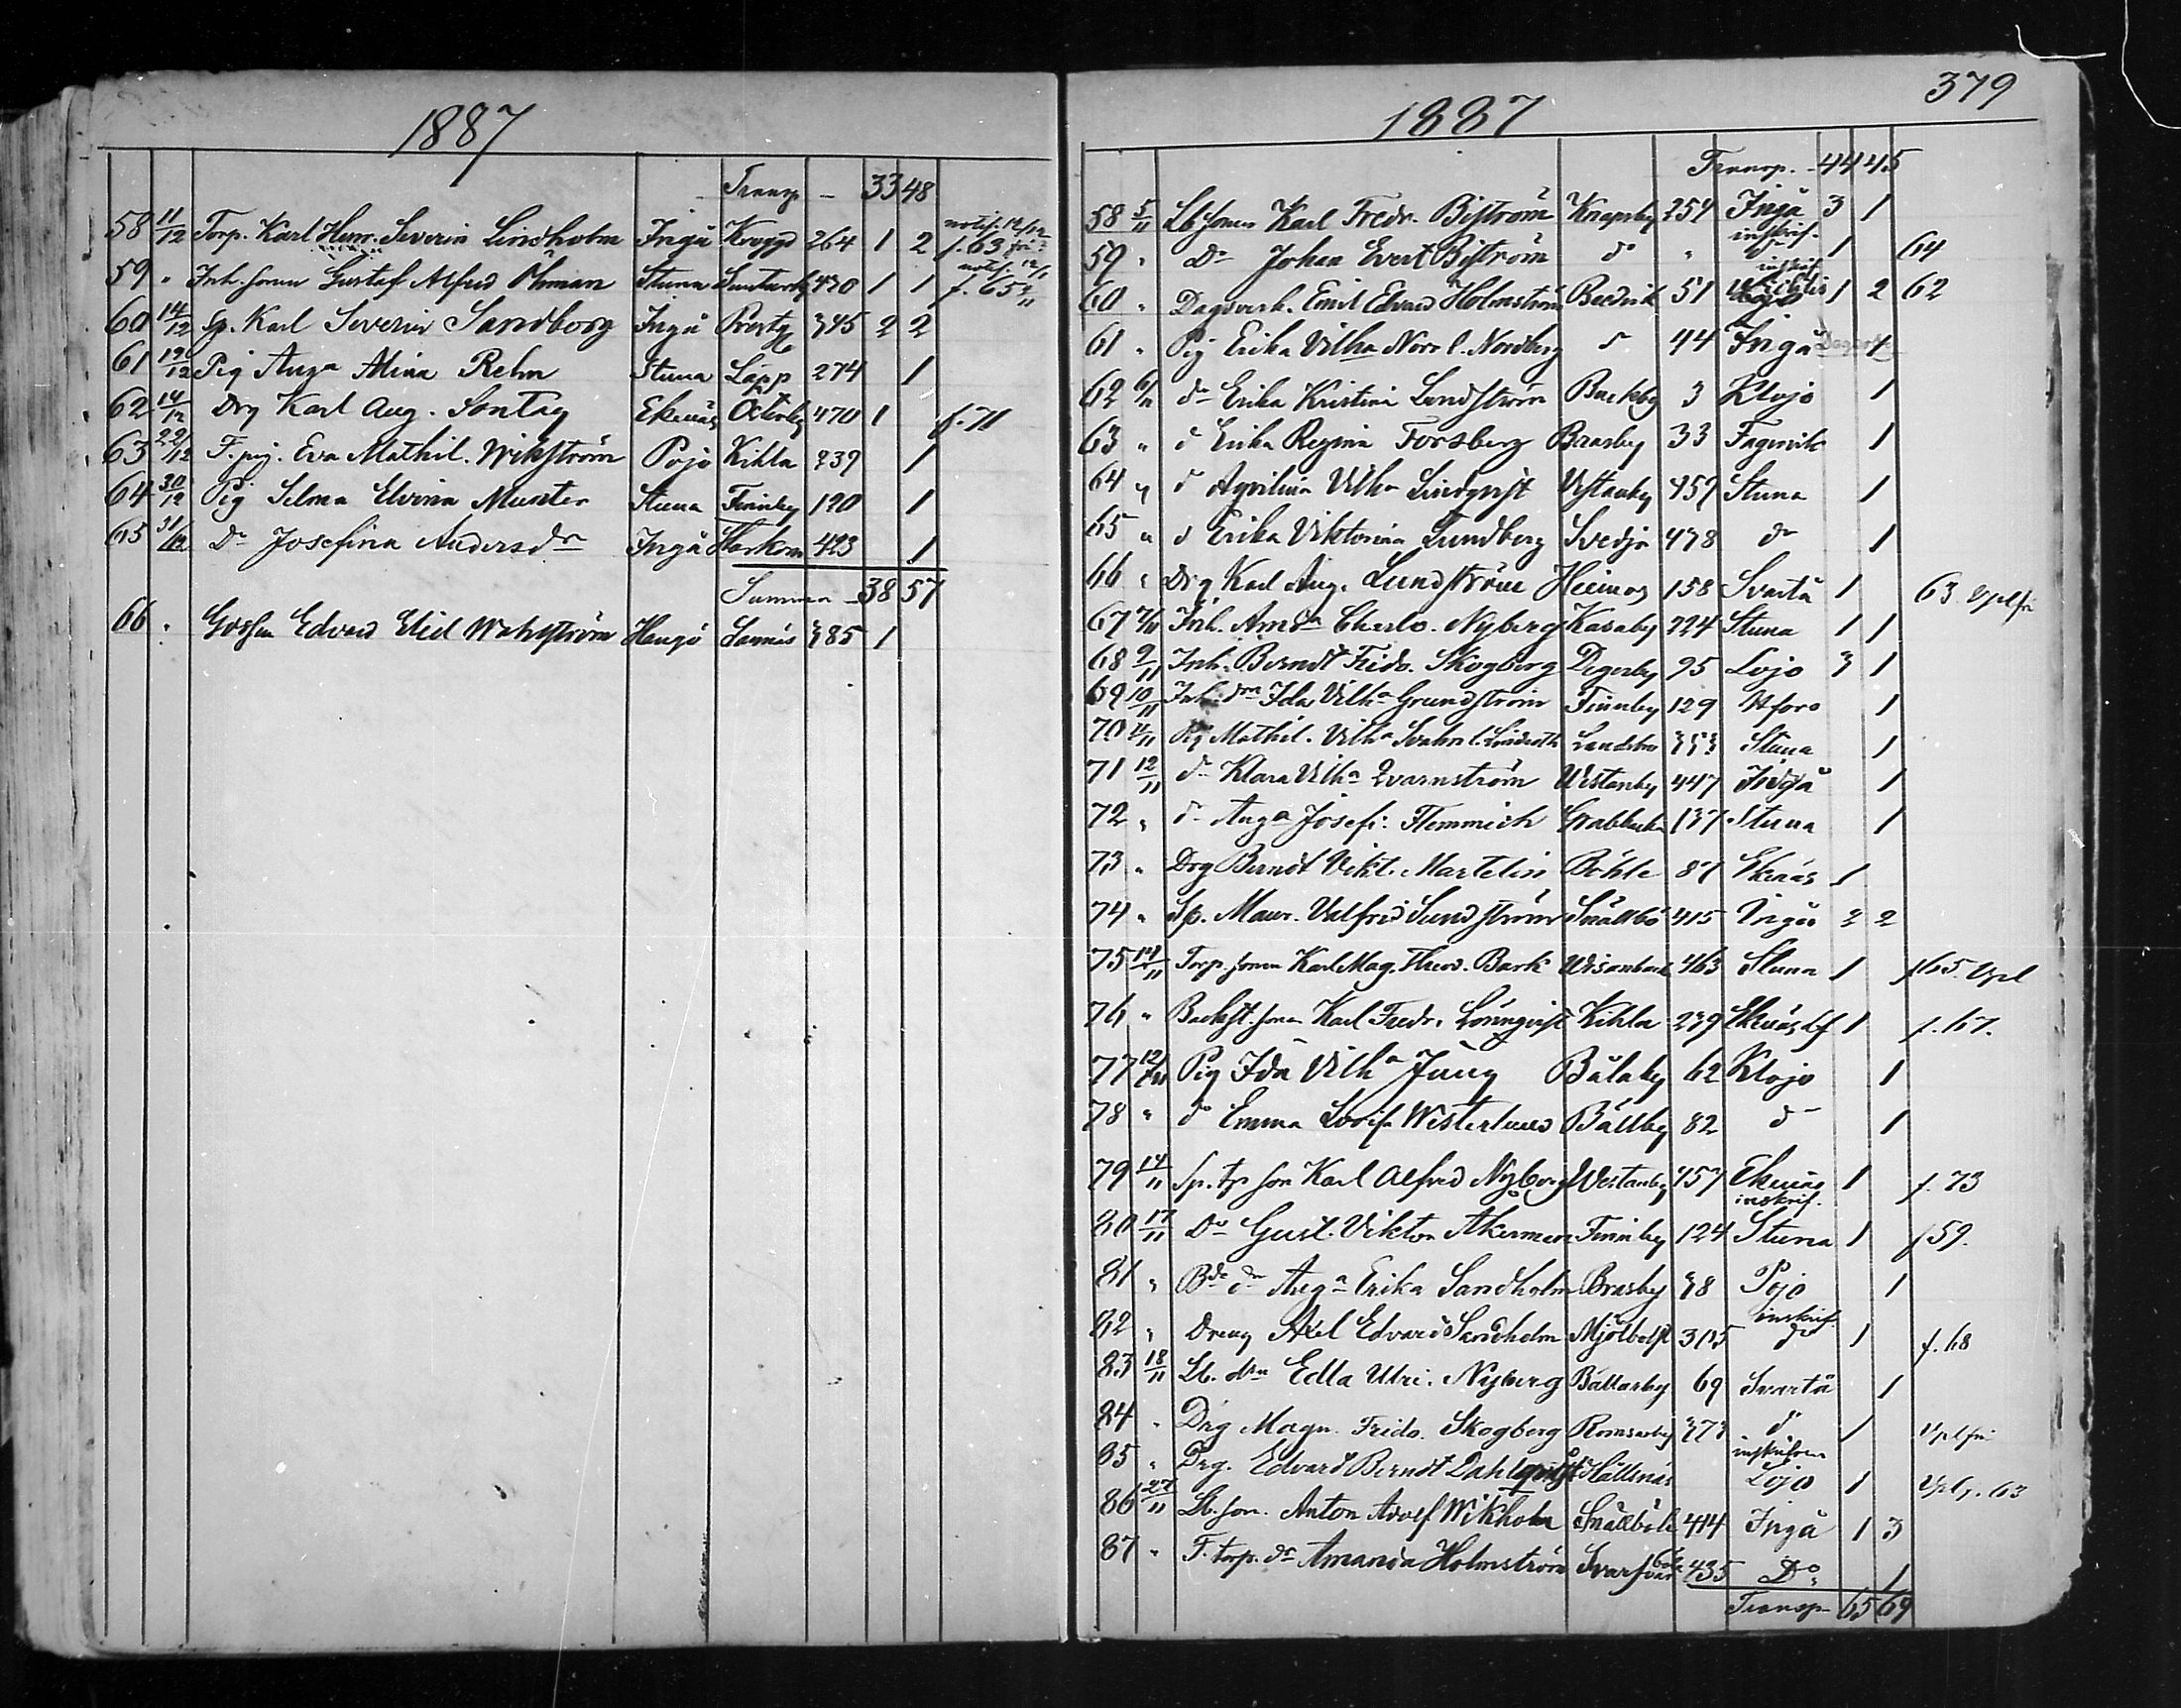 1887
Transp. — 33 48
58 11/12 Torp. Karl Henr. Severin Lindholm Ingå Kroggd 264 1 2 notif. 12/12 f. 63
59 " Inh. sonen Gustaf Alfred Öhman Stuna 430 1 1 f. 65
60 14/12 Sp. Karl Severin Sandborg Ingå Prestg 345 2 2
61 19/12 Pig Auga Mina Rehn Stuna Lapp 274 1
62 14/12 Drg Karl Aug. Sontag Ekenäs Österby 470 1 f. 71
63 22/12 F. pig. Eva Mathil. Wikström Pojo Kihla 239 1
64 30/12 Pig Selma Elvira Munter Stuna Finnby 120 1
65 31/12 Do Josefina Andersdr Ingå Harkom 423 1
Summa — 38 57
66 " Gossen Edvard Elied Wahlström Hangö Sannäs 385 1
379
1887
Transp. — 44 45
58 5/11 Lb. sonen Karl Fredr. Biström Knapsby 254 Ingå 3 1
59 " Do Johan Evert Biström do " inskrif. do 1 64
60 " Dagsverk. Emil Edvard Holmström Bredvik 51 1 2 62
61 " Pig Erika Vilha Norr l. Nordberg do 44 Ingå 1
62 6/11 do Erika Kristina Lundström Backby 3 Klojo 1
63 " do Erika Regina Forsberg Brasby 33 Fagervik 1
64 " do Aqvilina Vilha Lindqvist Vestanby 457 Stuna 1
65 " do Erika Viktorina Lundberg Svedja 438 do 1
66 " Drg Karl Aug. Lundström Heimos 158 Svartå 1 63
67 7/11 Inh. Amda Charlo. Nyberg Kasaby 224 Stuna 1 1
68 9/11 Inh. Berndt Frido. Skogberg Degerby 95 Lojo 3 1
69 10/11 Inh. drn Ida Vilha Grundström Finnby 129 Hfors 1
70 11/11 Pig Mathil. Vilha Svahn l. Lindroth Landsbro 353 Stuna 1
71 12/11 do Klara Vilha Qvarnström Westanby 447 Ingå 1
72 " do Auga Josefi. Flemmich Grabbacka 137 Stuna 1
73 " Drg Berndt Vikt. Martelin Böhle 87 Ekenäs 1
74 " Sp. Maur. Valfrid Sundström Snällbö 415 Ingå 2 2
75 14/11 Torp. sonen Karl Mag. Theod. Bark 463 Stuna 1 f 65
76 " Backst. sonen Karl Fredr. Lönnqvist Kihla 239 Ekenäs Lf 1 f. 67.
77 12/11 Pig Ida Vilha Jung Bålaby 62 Klojo 1
78 " do Emma Lovisa Westerlund Bällby 82 do 1
79 14/11 Sp. tp son Karl Alfred Nyberg Westanby 457 Ekenäs 1 f. 73
80 17/11 Do Gust. Viktor Åkerman Finnby 124 inskrif. Stuna 1 f 59.
81 " Bde dr Auga Erika Sandholm Brasby 38 Pojo 1
82 " Dreng Axel Edvard Sandholm Mjölbolst 305 inskrif. do 1 f. 68
83 18/11 Lb. drn Edla Ulri. Nyberg Bällarby 69 Svartå 1
84 " Drg Magn. Frido. Skogberg Romsarby 373 do 1
85 " Drg. Edvard Berndt Dahlqvist Hällnäs Lojo 1 63
86 22/11 Lb. son. Anton Adolf Wikholm Snällböle 414 Ingå 1 3
87 " F. torp. dr Amanda Holmström 435 Do 1
Transp 65 69